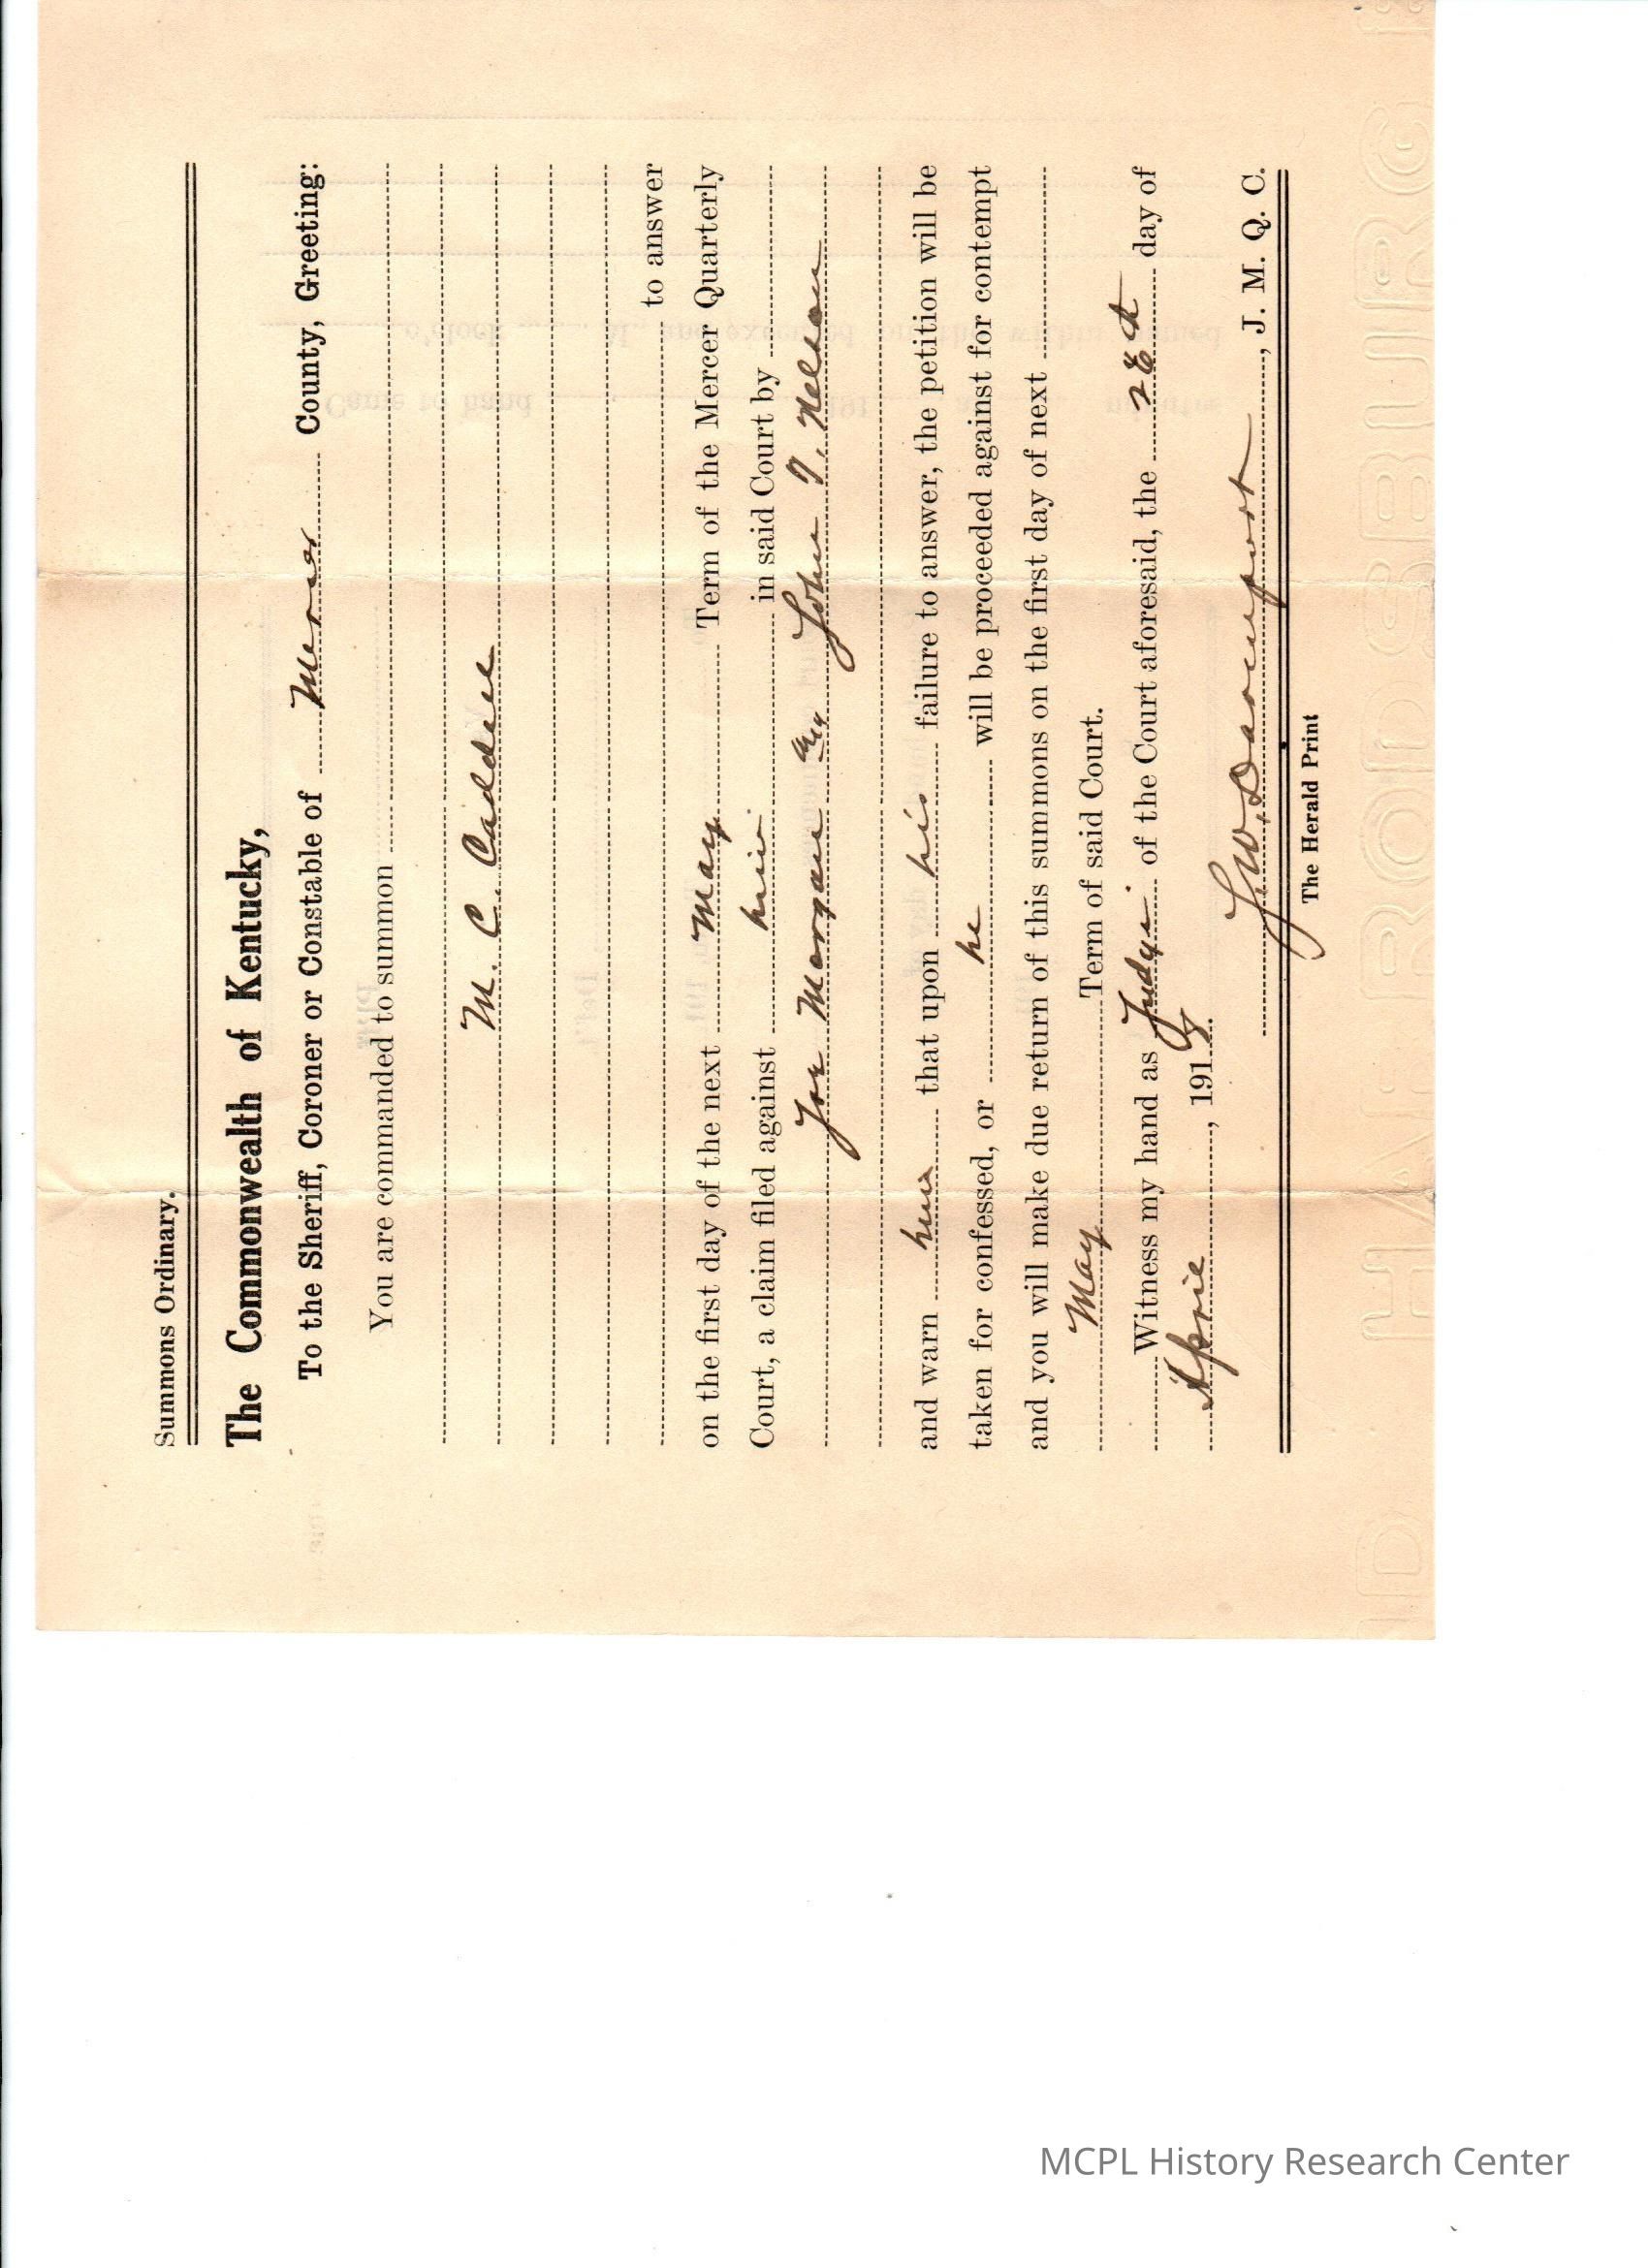 Summons Ordinary.
The Commonwealth of Kentucky,
To the Sheriff, Coroner or Constable of Mercer County, Greeting:
You are commanded to summon
M. C. Caddell
to answer
on the first day of the next May Term of the Mercer Quarterly
Court, a claim filed against him in said Court by
Joe Morgan John T. Nelson
and warn him that upon his failure to answer, the petition will be
taken for confessed, or he will be proceeded against for contempt
and you will make due return of this summons on the first day of next
May Term of said Court.
Witness my hand as Judge of the Court aforesaid, the 28th day of
April, 191
J.W. Davenport, J. M. Q. C.
The Herald Print
HARRODSBURG
MCPL History Research Center